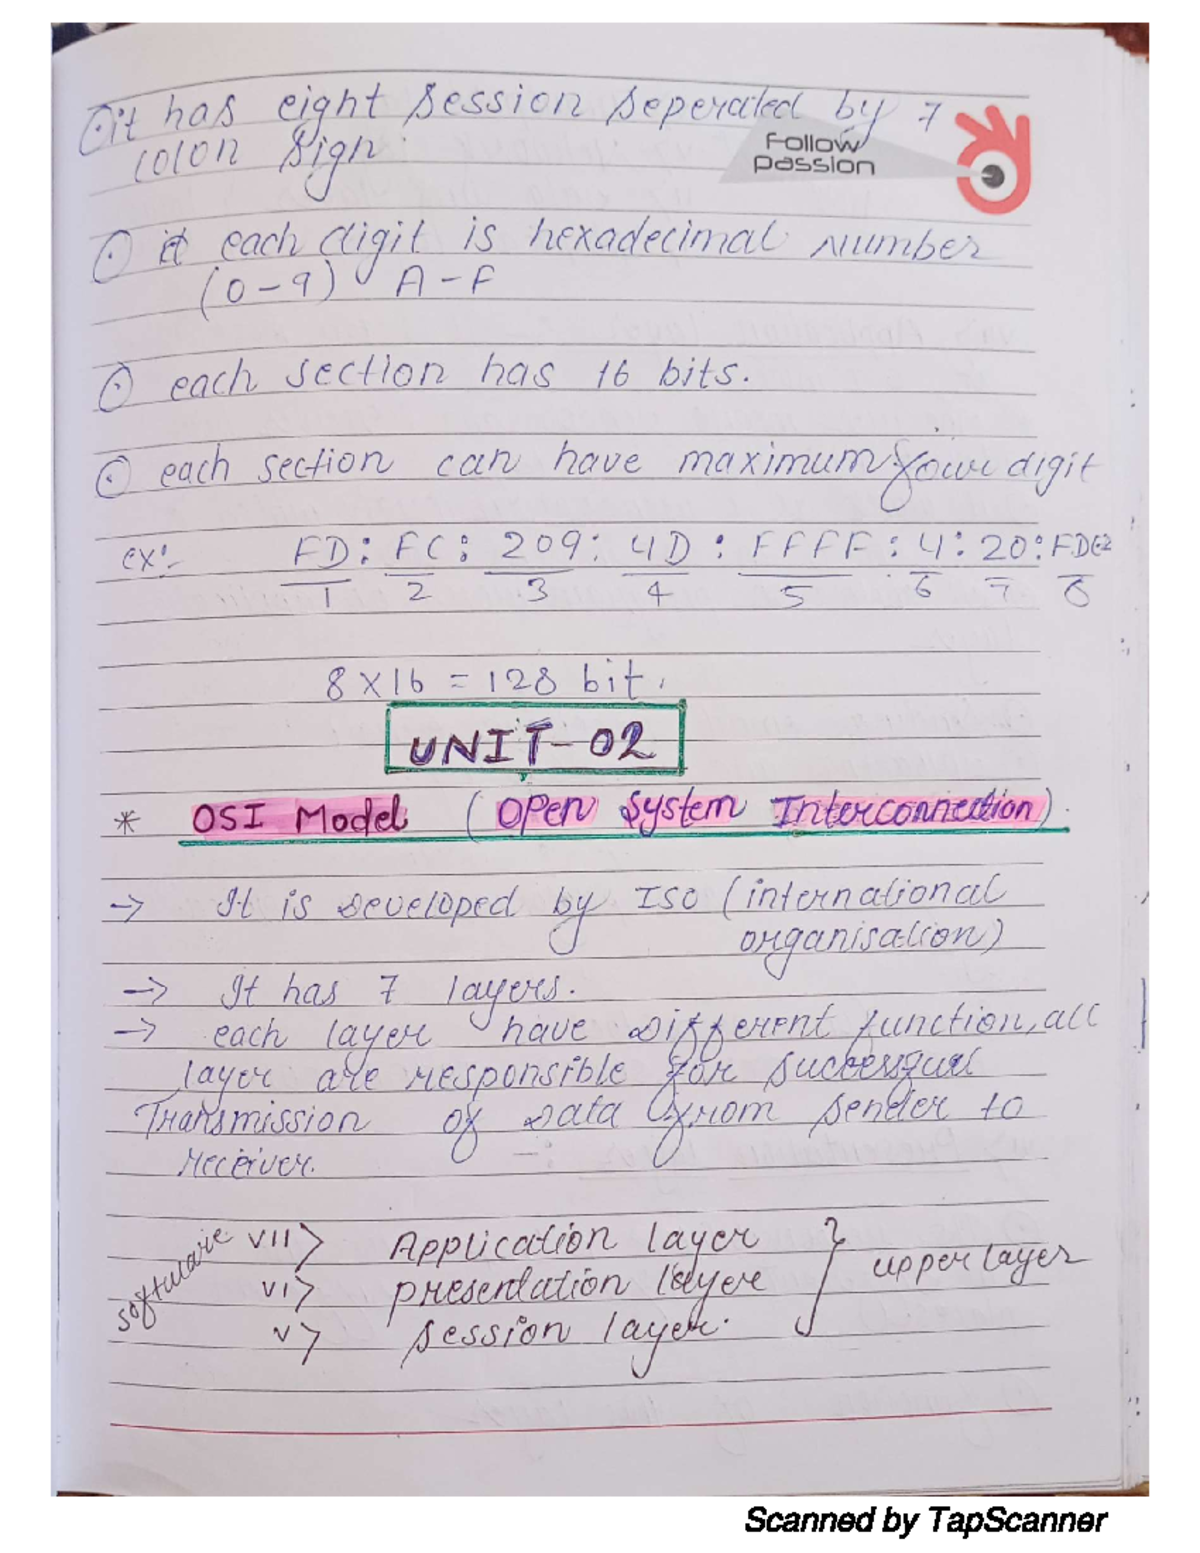 it has eight session seperated by 7
Follow
passion
colon sign.
it each digit is hexadecimal number
(0-9) A-F
each section has 16 bits.
each section can have maximum four digit
ex:- FD : FC : 209 : 4D : FFFF : 4 : 20 : FDE2
1 2 3 4 5 6 7 8
8 x 16 = 128 bit.
UNIT-02
* OSI Model (Open System Interconnection).
-> It is developed by ISO (international
organisation)
-> It has 7 layers.
-> each layer have different function, all
layer are responsible for successful
Transmission of Data from sender to
receiver.
software VII> Application layer
VI> presentation layer } upper layer
V> session layer.
Scanned by TapScanner